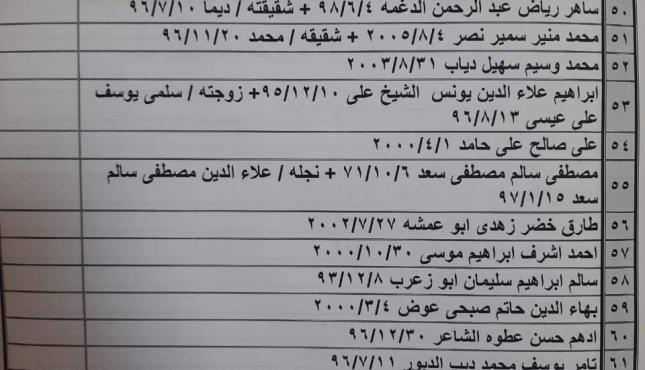 ٥٠ ساهر رياض عبد الرحمن الدغمه ٩٨/٦/٤ + شقيقته / ديما ٩٦/٧/١٠
٥١ محمد منير سمير نصر ٢٠٠٥/٨/٤ + شقيقه / محمد ٩٦/١١/٢٠
٥٢ محمد وسيم سهيل دياب ٢٠٠٣/٨/٣١
٥٣ ابراهيم علاء الدين يونس الشيخ على ٩٥/١٢/١٠+ زوجته / سلمى يوسف
على عيسى ٩٦/٨/١٣
٥٤ على صالح على حامد ٢٠٠٠/٤/١
٥٥ مصطفى سالم مصطفى سعد ٧١/١٠/٦ + نجله / علاء الدين مصطفى سالم
سعد ٩٧/١/١٥
٥٦ طارق خضر زهدى ابو عمشه ٢٠٠٢/٧/٢٧
٥٧ احمد اشرف ابراهيم موسى ٢٠٠٠/١٠/٣٠
٥٨ سالم ابراهيم سليمان ابو زعرب ٩٣/١٢/٨
٥٩ بهاء الدين حاتم صبحى عوض ٢٠٠٠/٣/٤
٦٠ ادهم حسن عطوه الشاعر ٩٦/١٢/٣٠
٦١ تامر يوسف محمد ديب الديور ٩٦/٧/١١